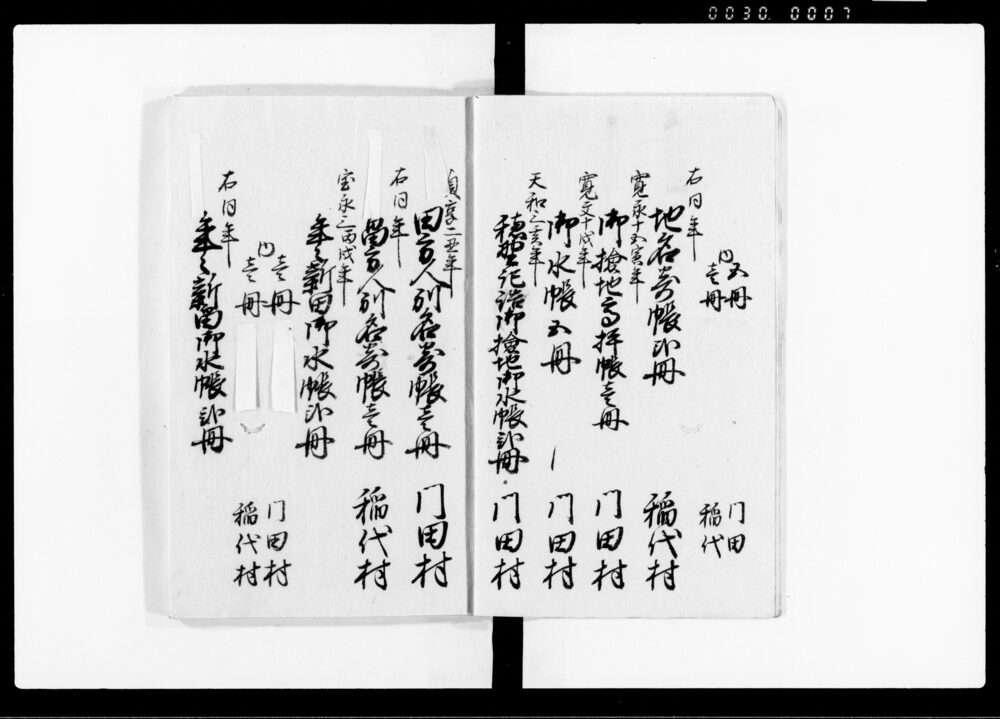 0030. 0007
内 五冊
壱冊
門田
稲代
右同年
地名寄帳弐冊
稲代村
寛永十五寅年
御検地高拝帳壱冊
門田村
寛文十戌年
御水帳五冊
門田村
天和三亥年
御検地御水帳弐冊
門田村
貞享二丑年
田方人別名寄帳壱冊
門田村
右同年
畠方人別名寄帳壱冊
稲代村
宝永三丙戌年
年々新田御水帳弐冊
内 壱冊
壱冊
門田村
稲代村
右同年
年々新畠御水帳弐冊